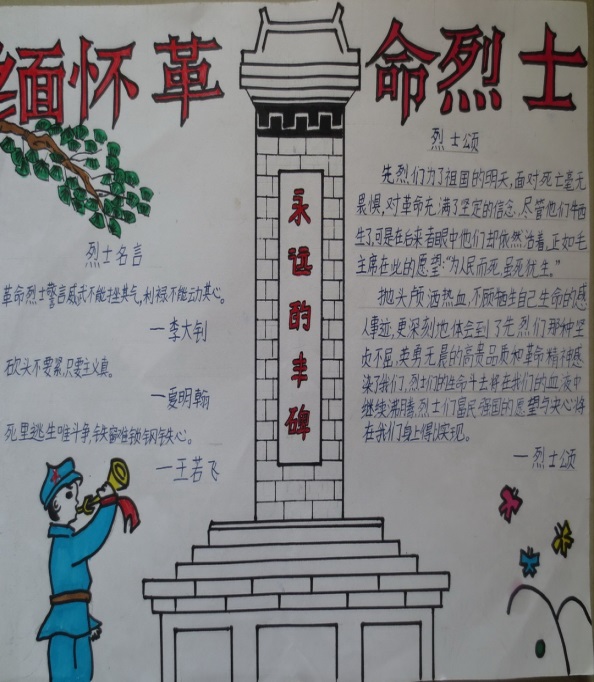 缅怀革命烈士
烈士名言
革命烈士警言威武不能挫其气,利禄不能动其心。
—李大钊
砍头不要紧,只要主义真。
—夏明翰
死里逃生唯斗争,铁窗难锁钢铁心。
—王若飞
永远的丰碑
烈士颂
先烈们为了祖国的明天,面对死亡毫无
畏惧,对革命充满了坚定的信念.尽管他们牺
生了,可是在后来者眼中他们却依然活着。正如毛
主席在此的愿望:“为人民而死,虽死犹生。”
抛头颅洒热血,不顾牺生自己生命的感
人事迹,更深刻地体会到了先烈们那种坚
贞不屈,英勇无晨的高贵品质和革命精神感
染了我们,烈士们的生命斗志将在我们的血液中
继续沸腾,烈士们富民强国的愿望与决心将
在我们身上得以实现。
—烈士颂